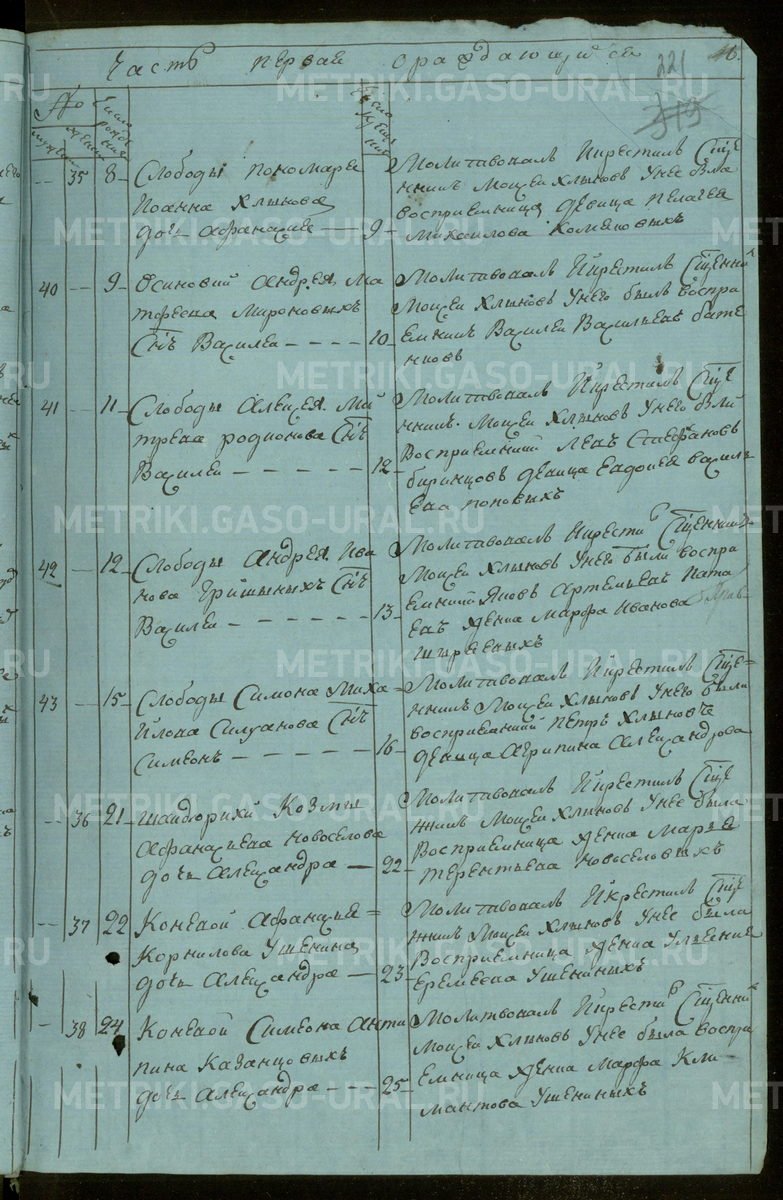 Часть первая о раждающихся
221
319
46
No
мужеск
женск
Число рождения
Число крещения
35 8 Слободы пономаря
Иоанна Хлынова
дочь Афанасия 9
Молитвовалъ Икрестилъ Свяще
нникъ Моисей Хлыновъ Унее была
восприемница девица Пелагея
Михайлова Коми
40 9 Осиновий Андрея Ма
тфеева Мироновыхъ
Сынъ Василей 10
Молитвовалъ Икрестилъ Священникъ
Моисей Хлыновъ Унего былъ воспри
емникъ Василей Васильевъ Бате
нновъ
41 11 Слободы Алексея Ми
треева родионова Сынъ
Василей 12
Молитвовалъ Икрестилъ Свяще
нникъ Моисей Хлыновъ Унего были
Восприемники Левъ Стефановъ
биринцовъ девица Евдокея василь
ева поповыхъ
42 12 Слободы Андрея Ива
нова Гришиныхъ Сынъ
Василей 13
Молитвовалъ Икрестилъ Священникъ
Моисей Хлыновъ Унего были воспри
емники Яковъ Артемьевъ Ипата
евъ женка Марфа Иванова
Шыряевыхъ
43 15 Слободы Симона Миха
йлова Силуанова Сынъ
Симеонъ 16
Молитвовалъ Икрестилъ Свяще
нникъ Моисей Хлыновъ Унего были
восприемники Петръ Хлыновъ
девица Агрипина Александрова
36 21 Шайдурихи Козмы
Афанасьева Новоселова
дочь Александра 22
Молитвовалъ Икрестилъ Свяще
нникъ Моисей Хлыновъ Унее была
Восприемница женка Марья
Терентьева Новоселовыхъ
37 22 Коневой Афанасья
Корнилова Ушенина
дочь Александра 23
Молитвовалъ Икрестилъ Свяще
нникъ Моисей Хлыновъ Унее была
Восприемница женка Ульяния
Еремеева Ушениныхъ
38 24 Коневой Симеона Анти
пина Казанцовыхъ
дочь Александра 25
Молитвовалъ Икрестилъ Священникъ
Моисей Хлыновъ Унее была воспри
емница женка Марфа Кли
мантова Ушениныхъ
METRIKI.GASO-URAL.RU